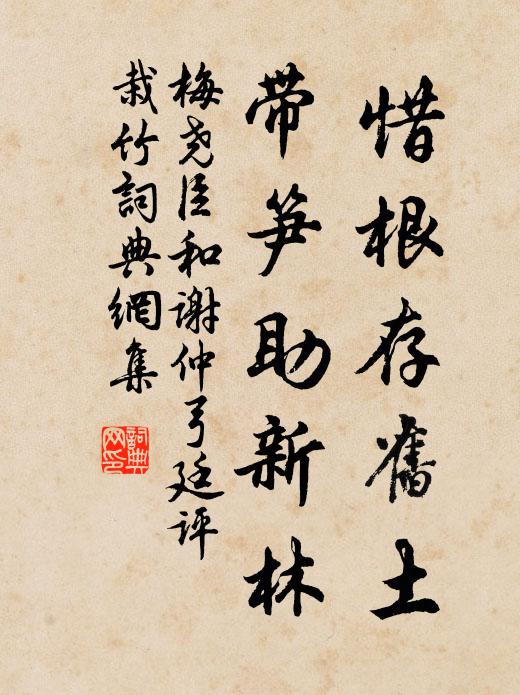 惜根存舊土
带笋助新林
梅尧臣和谢仲弓廷评
栽竹詞典網集
詞典
网印